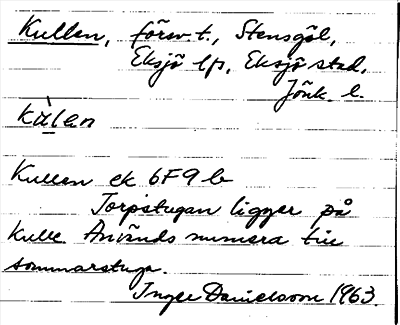 Kullen, försv. t., Stensgöl,
Eksjö lfs, Eksjö stad,
Jönk. l.
kùlen
Kullen ek 6F9b
Torpstugan ligger på
kulle Används numera till
sommarstuga.
Inger Danielsson 1963.